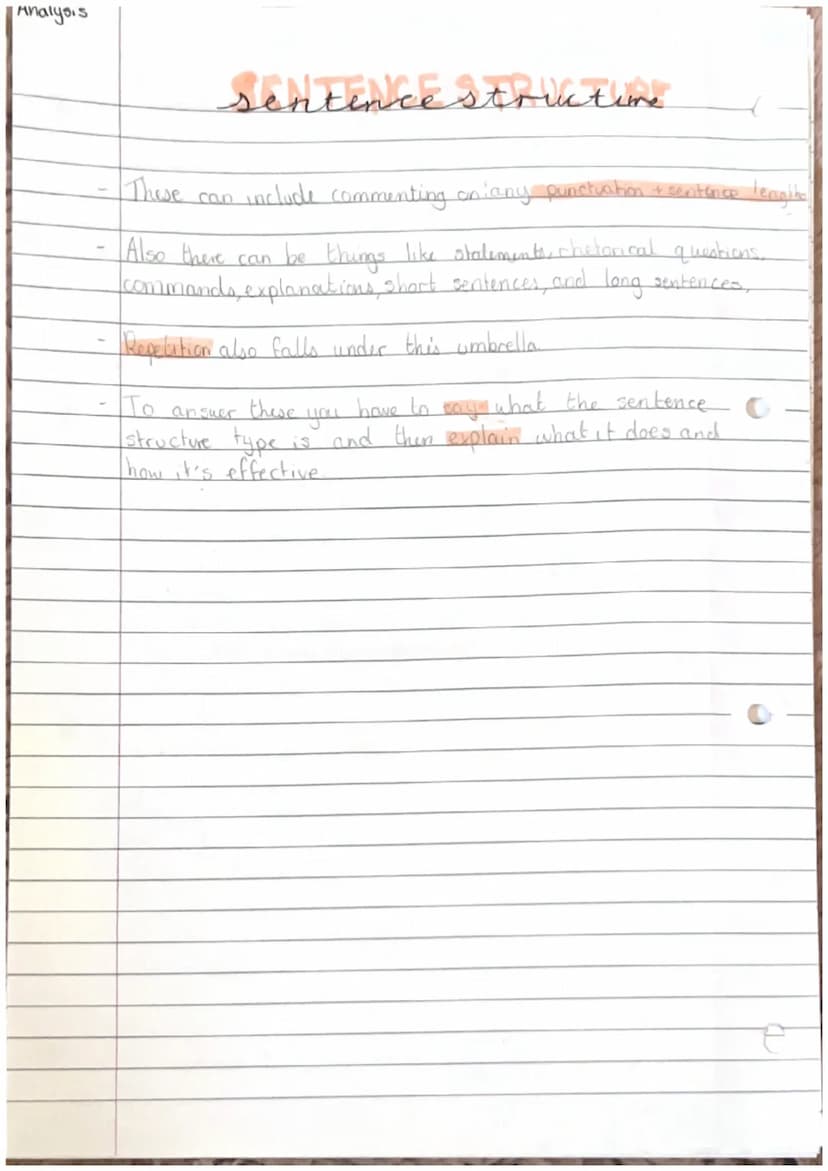 Analysis
SENTENCE STRUCTURE
sentence structure
- These can include commenting on any punctuation + sentence lengths
- Also there can be things like statements, rhetorical questions,
commands, explanations, short sentences, and long sentences,
- Repetition also falls under this umbrella
- To answer these you have to say what the sentence
structure type is and then explain what it does and
how it's effective.
e